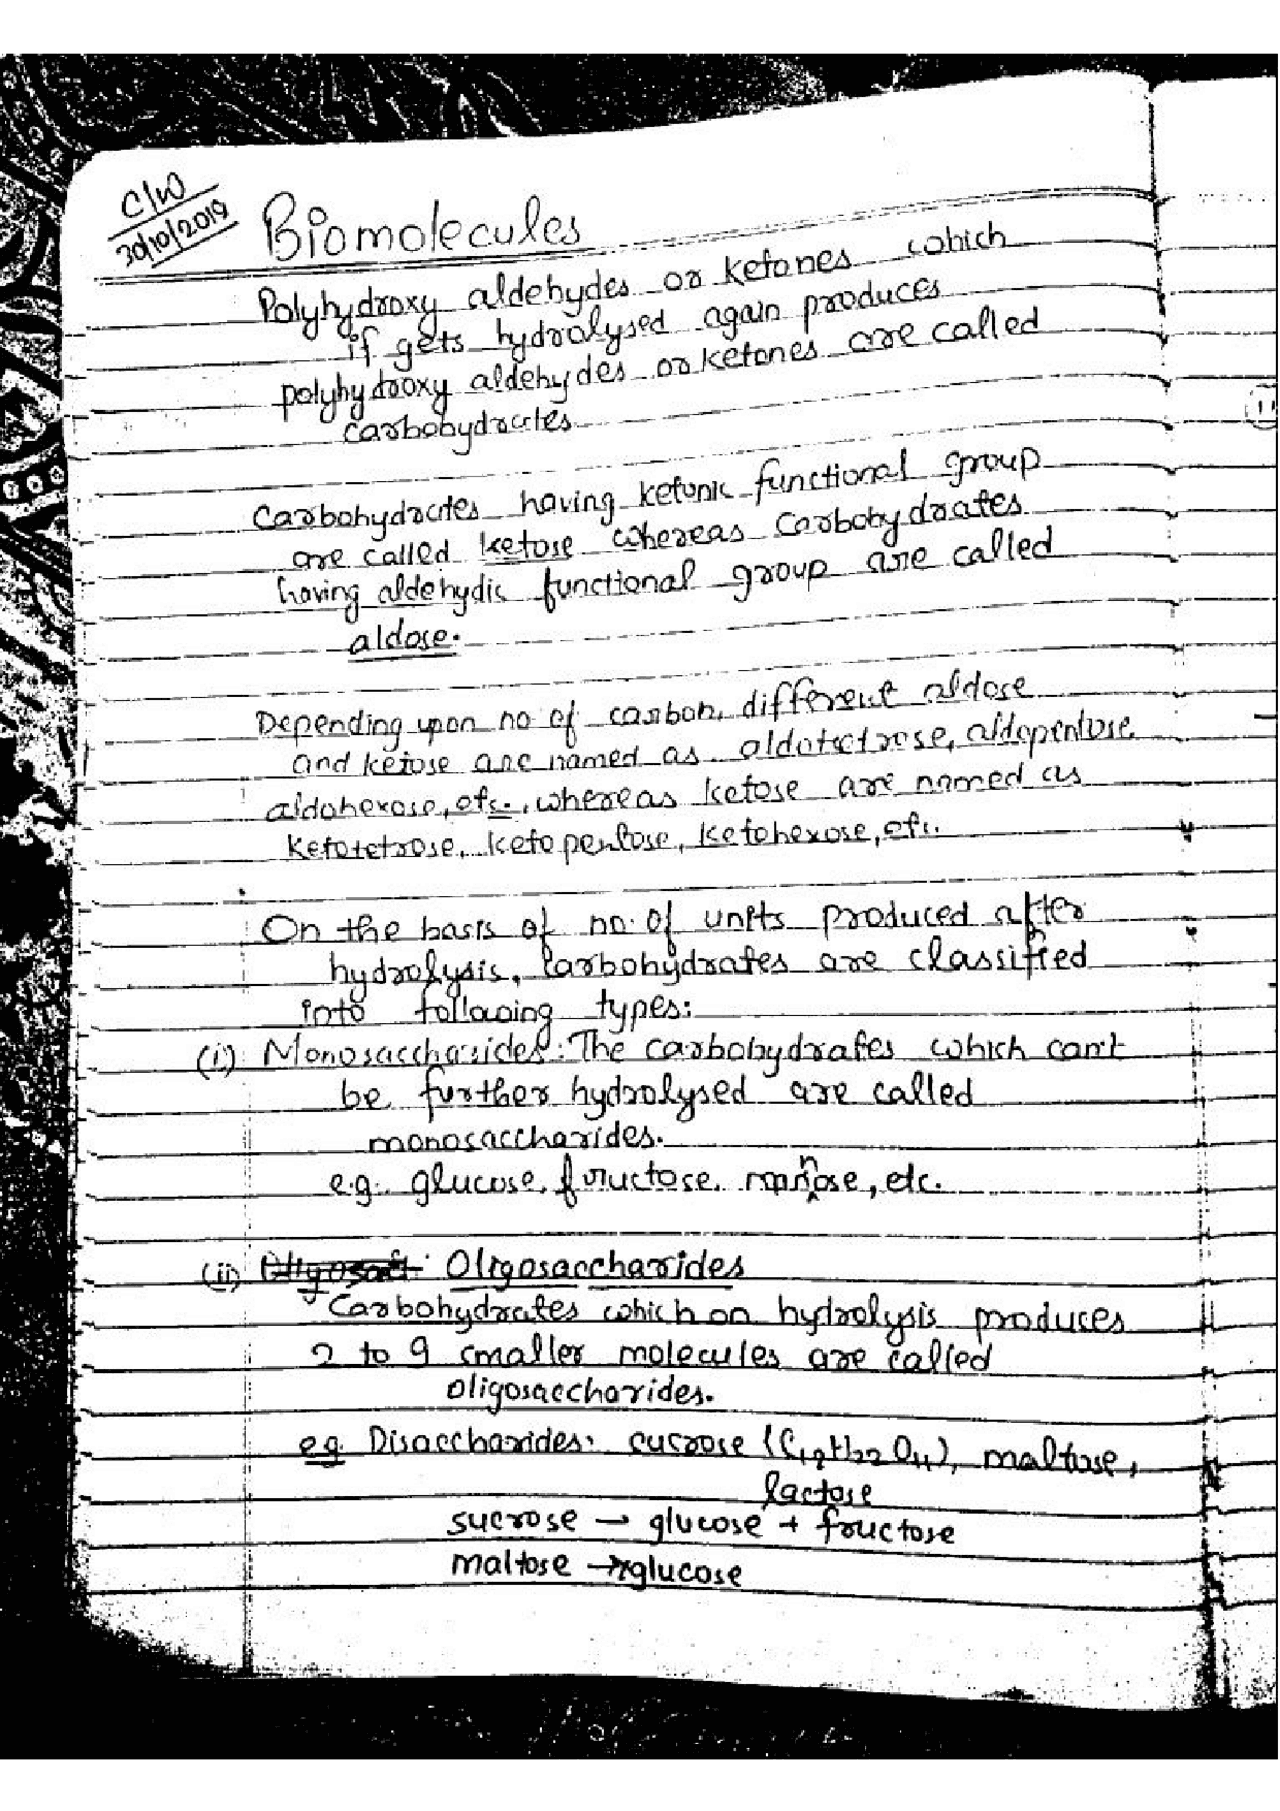 C/W
30/10/2019
Biomolecules
Polyhydroxy aldehydes or ketones which
if gets hydrolysed again produces
polyhydroxy aldehydes or ketones are called
carbohydrates
Carbohydrates having ketonic functional group
are called ketose whereas Carbohydraates
having aldehydic functional group are called
aldose.
Depending upon no of carbon, different aldose
and ketose are named as aldotetrose, aldopentose,
aldohexose, etc., whereas ketose are named as
ketotetrose, ketopentose, ketohexose, etc.
On the basis of no. of units produced after
hydrolysis, Carbohydrates are classified
into following types:
(i) Monosaccharides: The carbohydrates which can't
be further hydrolysed are called
monosaccharides.
e.g. glucose, fructose, mannose, etc.
(ii) Oligosaccharides
Carbohydrates which on hydrolysis produces
2 to 9 smaller molecules are called
oligosaccharides.
e.g. Disaccharides: sucrose (C₁₂H₂₂O₁₁), maltose,
lactose
sucrose → glucose + fructose
maltose → glucose
11